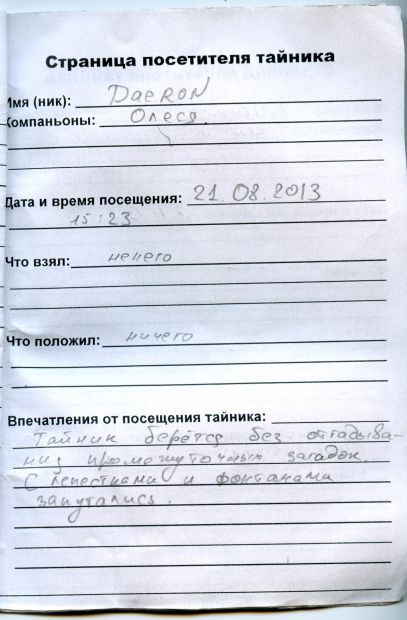 Страница посетителя тайника
Имя (ник): DaeRON
Компаньоны: Олеся
Дата и время посещения: 21.08.2013
15:23
Что взял: нечего
Что положил: ничего
Впечатления от посещения тайника:
Тайник берётся без отгадыва-
ния промежуточных загадок.
С лепестками и фонтанами
запутались.